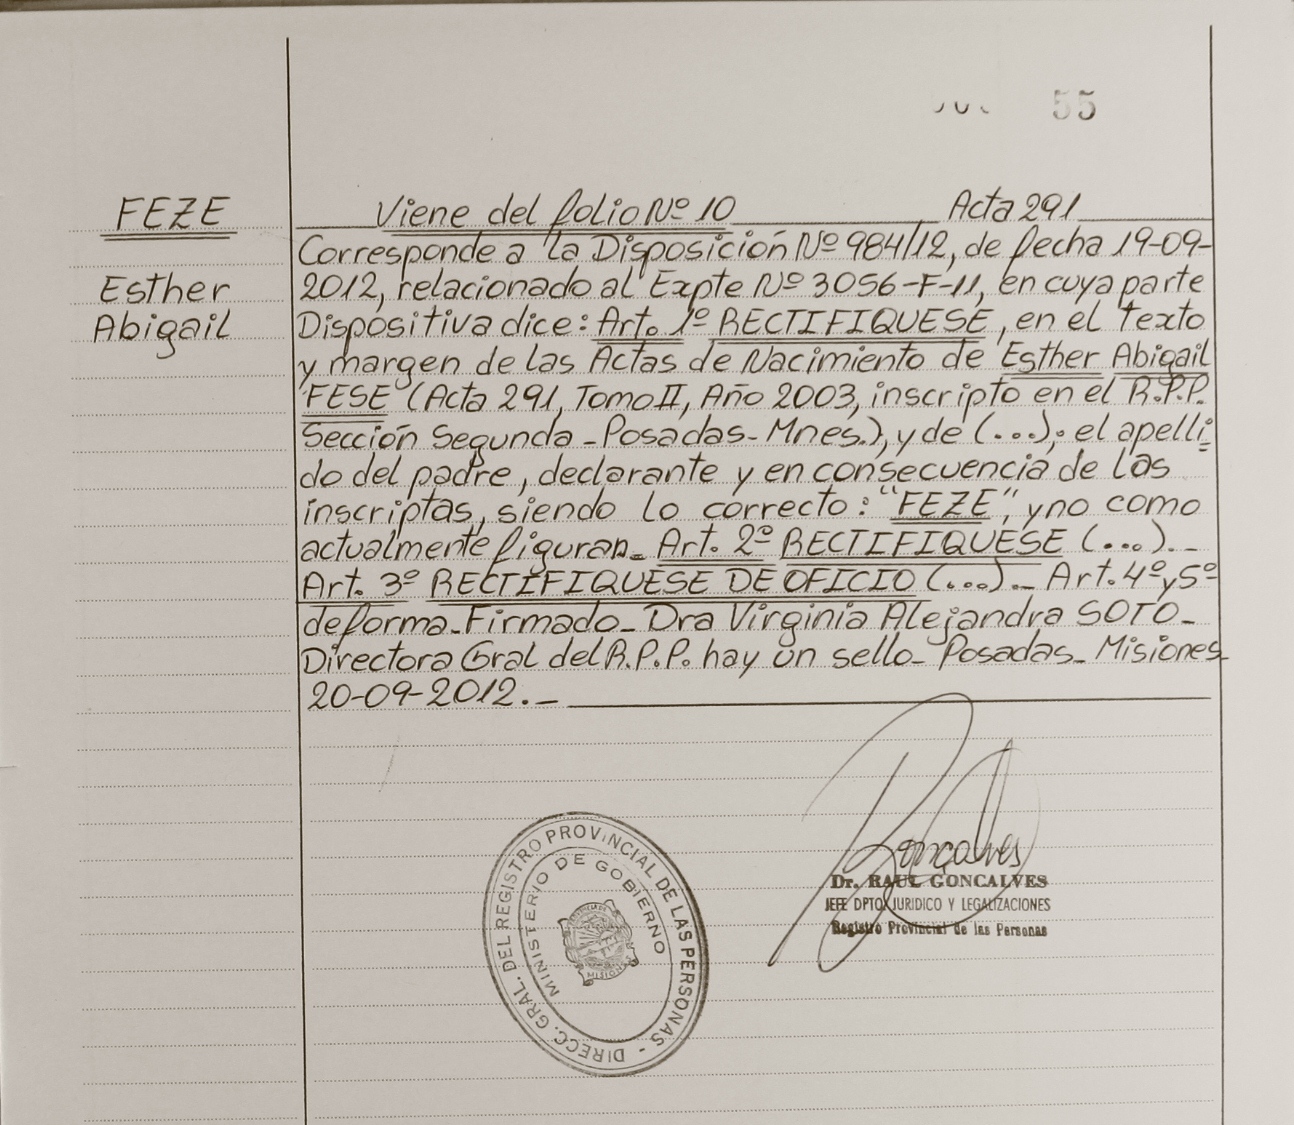 55
FEZE
Esther
Abigail
Viene del folio Nº 10 Acta 291
Corresponde a la Disposición Nº 984/12, de fecha 19-09-
2012, relacionado al Expte Nº 3056-F-11, en cuya parte
Dispositiva dice: Art. 1º RECTIFIQUESE, en el texto
y margen de las Actas de Nacimiento de Esther Abigail
FESE (Acta 291, Tomo II, Año 2003, inscripto en el R.P.P.
Sección Segunda - Posadas - Mnes.), y de (...); el apelli-
do del padre, declarante y en consecuencia de las
inscriptas, siendo lo correcto: "FEZE", y no como
actualmente figuran_ Art. 2º RECTIFIQUESE (...)._
Art. 3º RECTIFIQUESE DE OFICIO (...)._ Art. 4º y 5º
de forma_Firmado_ Dra Virginia Alejandra SOTO_
Directora Gral del R.P.P. hay un sello_ Posadas_ Misiones_
20-09-2012._
Goncalves
Dr. RAUL GONCALVES
JEFE DPTO JURIDICO Y LEGALIZACIONES
Registro Provincial de las Personas
DIRECC. GRAL. DEL REGISTRO PROVINCIAL DE LAS PERSONAS -
MINISTERIO DE GOBIERNO
MISIONES